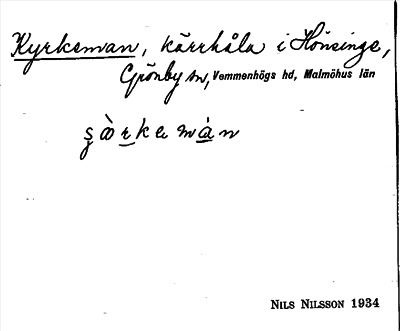 Kyrkeman, kärrhåla i Hönsinge,
Grönby sn, Vemmenhögs hd, Malmöhus län
ʂòrkemán
NILS NILSSON 1934